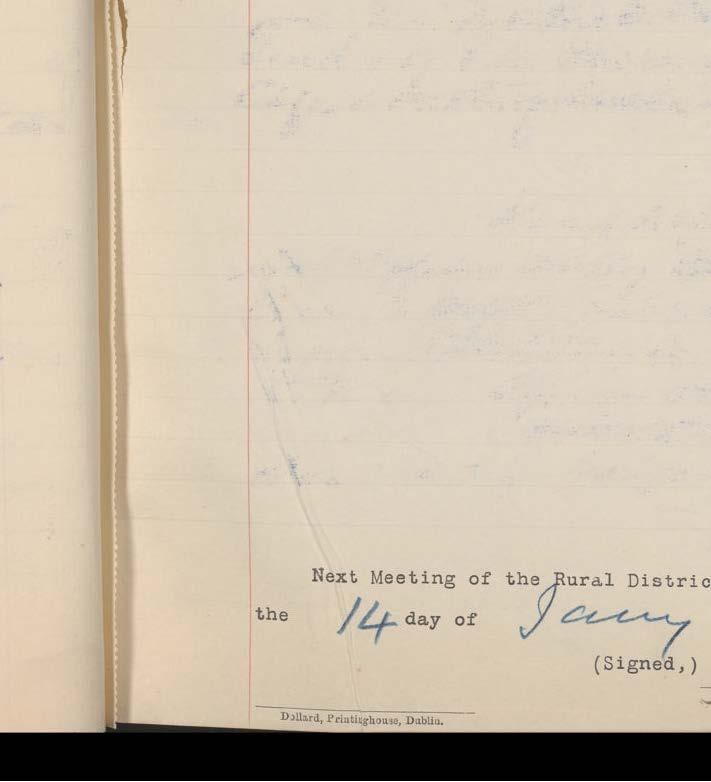 Next Meeting of the Rural Distric
the 14 day of Jany
(Signed,)
Dollard, Printinghouse, Dublin.